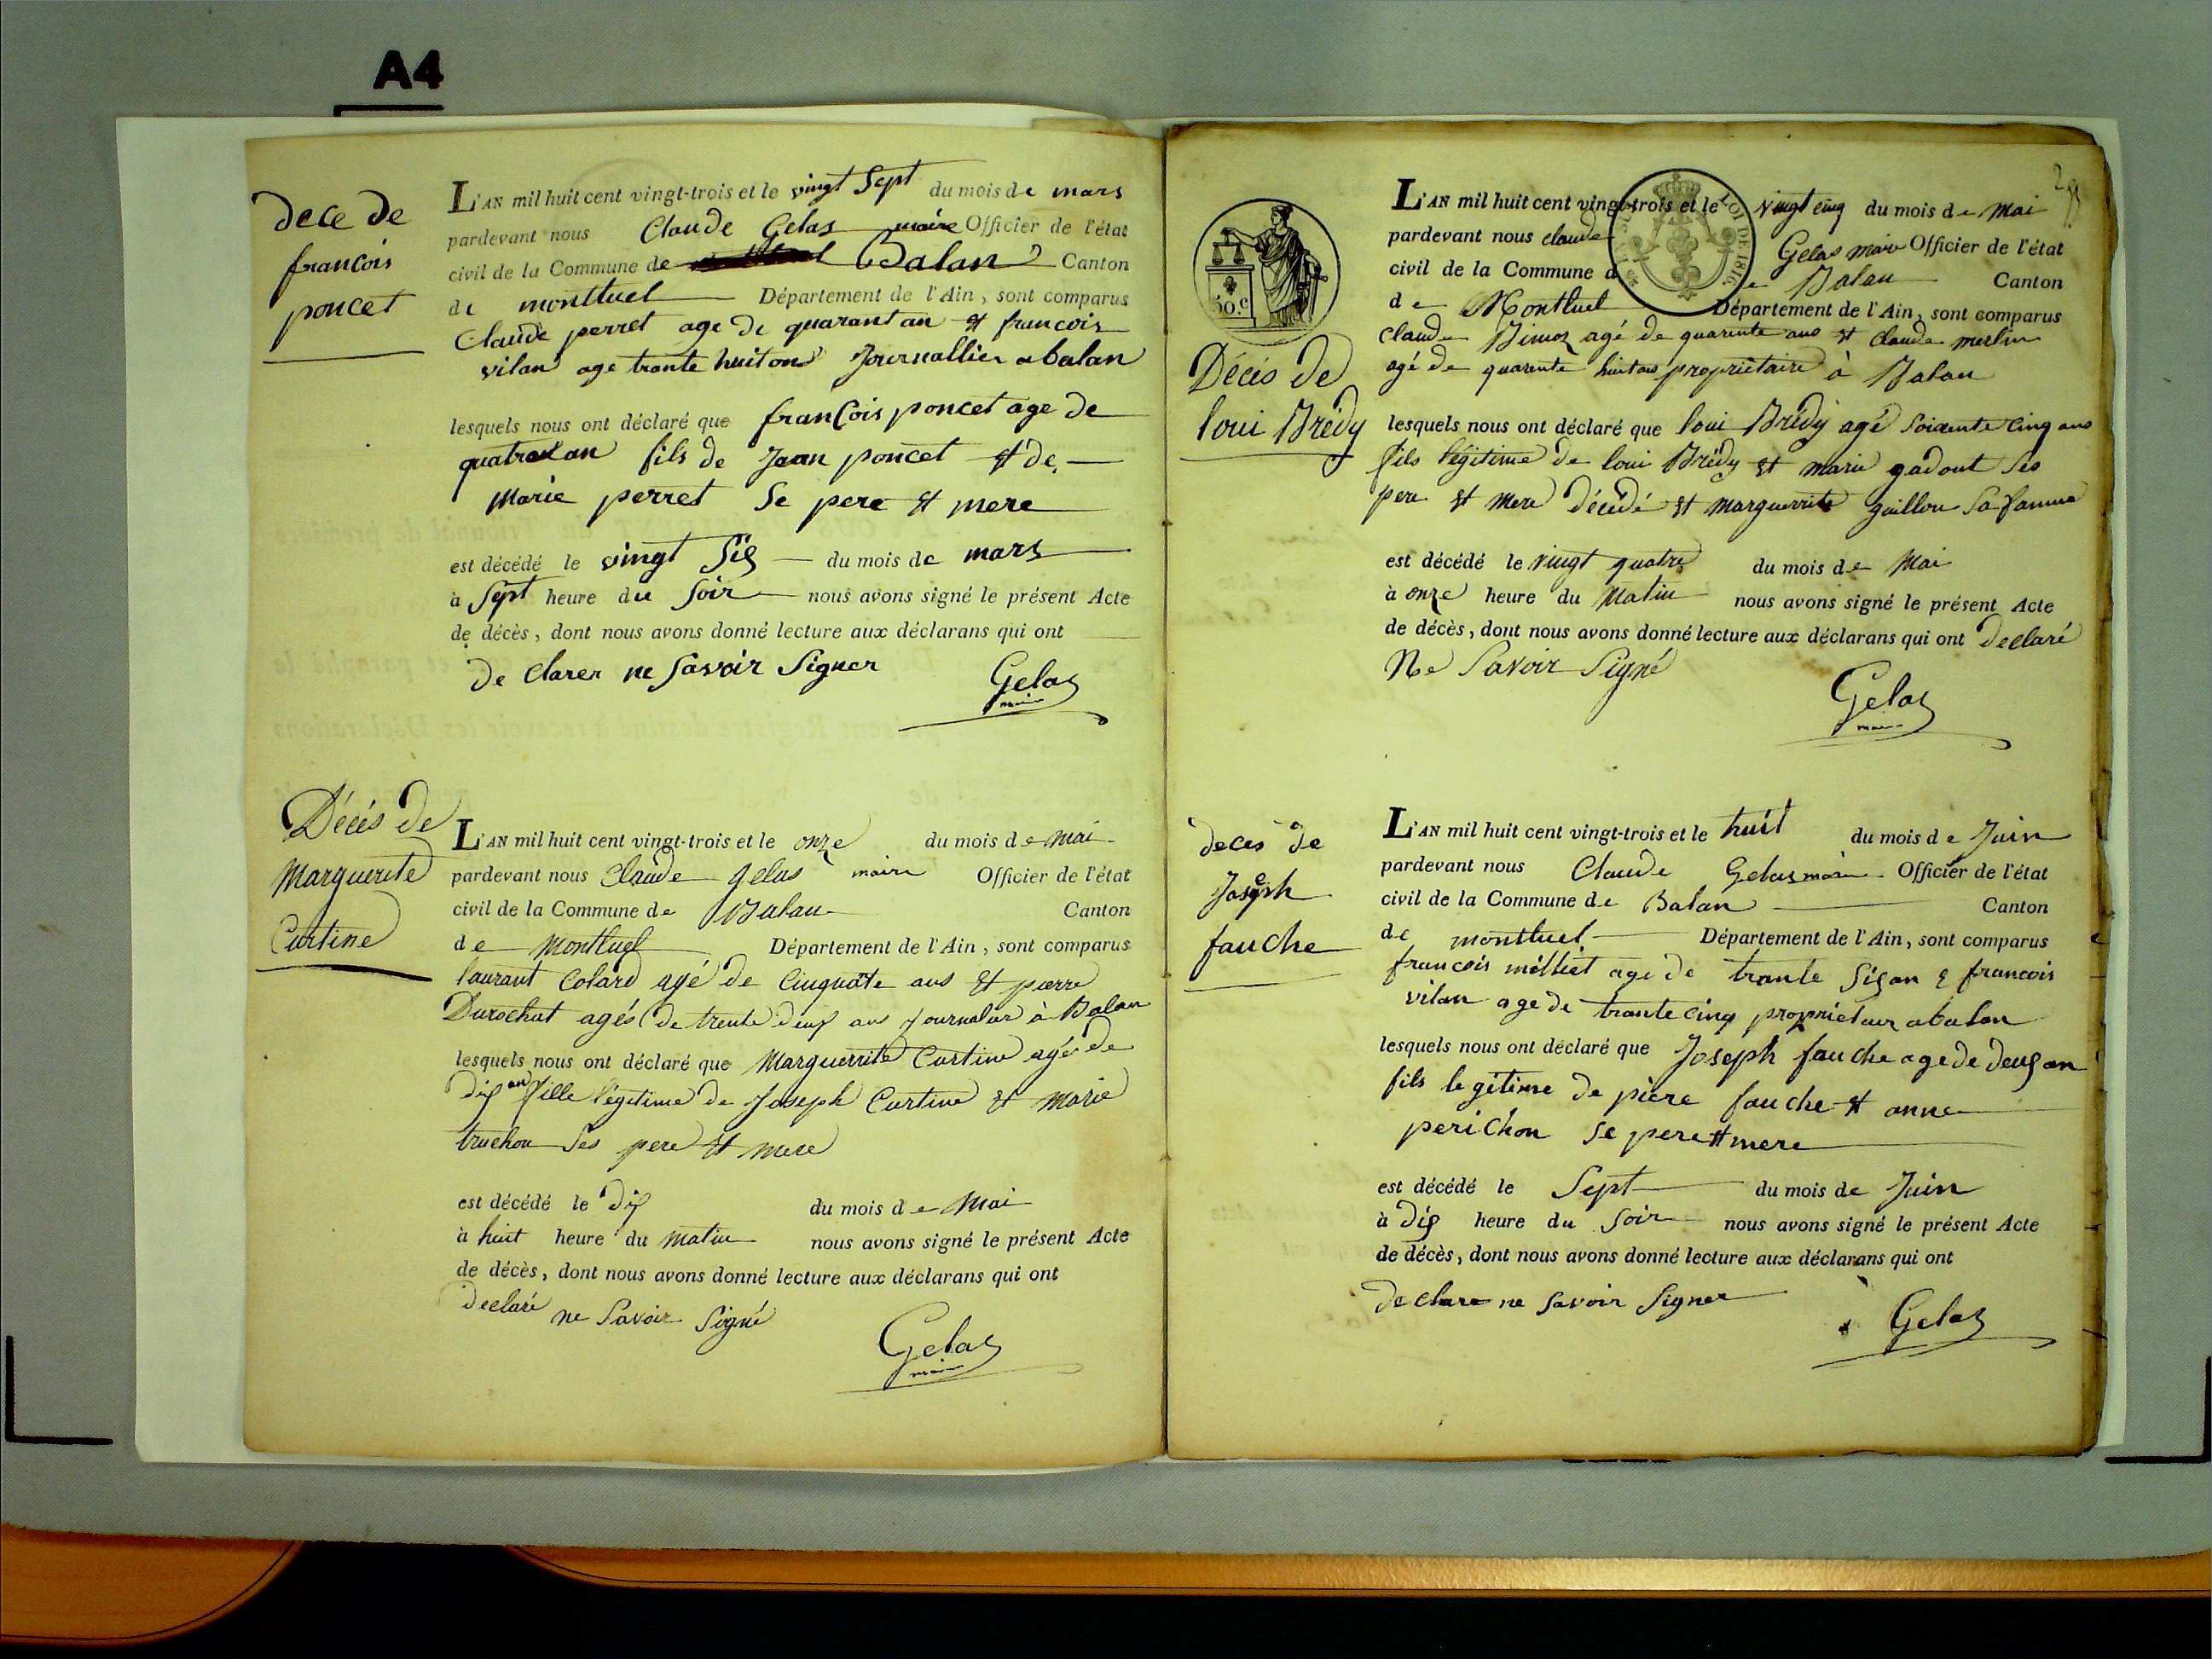 A4
dece de
francois
poncet
L'AN mil huit cent vingt-trois et le vingt Sept du mois de mars
pardevant nous Claude Gelas maire Officier de l'état
civil de la Commune de Balan Canton
de montluel Département de l'Ain, sont comparus
Claude perret age de quarant an et francois
vilan age trante huit ans Journallier a balan
lesquels nous ont déclaré que francois poncet age de
quatre an fils de Jean poncet et de
Marie perret Se pere et mere
est décédé le vingt Sig du mois de mars
à Sept heure du Soir nous avons signé le présent Acte
de décès, dont nous avons donné lecture aux déclarans qui ont
de clarer ne Savoir Signer
Gelas
maire
Décés de
Marguerite
Curtine
L'AN mil huit cent vingt-trois et le onze du mois de mai
pardevant nous Claude gelas maire Officier de l'état
civil de la Commune de Balan Canton
de Montluel Département de l'Ain, sont comparus
laurant Colard agé de Cinquate ans et pierre
Durochat agés de trente deux ans journalier à Balan
lesquels nous ont déclaré que Marguerrite Curtine agée de
dix an fille légitime de Joseph Curtine et Marie
truchon Ses pere et mere
est décédé le dix du mois de Mai
à huit heure du Matin nous avons signé le présent Acte
de décès, dont nous avons donné lecture aux déclarans qui ont
declaré ne Savoir Signé
Gelas
maire
2
50.c
LOI DE 1816
Décés de
loui Brédy
L'AN mil huit cent vingt-trois et le vingt cinq du mois de Mai
pardevant nous claude Gelas maire Officier de l'état
civil de la Commune de Balan Canton
de Montluel Département de l'Ain, sont comparus
Claude agé de quarente ans et Claude merlin
agé de quarente huit ans propriétaire à Balan
lesquels nous ont déclaré que loui Brédy agé Soixente Cinq ans
fils légitime de loui Brédy et marie gadout Ses
pere et Mere décédé et Marguerrite guillon Sa famme
est décédé le vingt quatre du mois de Mai
à onze heure du Matin nous avons signé le présent Acte
de décès, dont nous avons donné lecture aux déclarans qui ont declaré
Ne Savoir Signé
Gelas
maire
deces de
Joseph
fauche
L'AN mil huit cent vingt-trois et le huit du mois de Juin
pardevant nous Claude Gelas maire Officier de l'état
civil de la Commune de Balan Canton
de montluel Département de l'Ain, sont comparus
francois milliet age de trante Sig an & francois
vilan age de trante cinq proprietaire a balan
lesquels nous ont déclaré que Joseph fauche age de deug an
fils legitime de piere fauche et anne
perichon Se pere et mere
est décédé le Sept du mois de Juin
à dig heure du Soir nous avons signé le présent Acte
de décès, dont nous avons donné lecture aux déclarans qui ont
declare ne Savoir Signer
Gelas